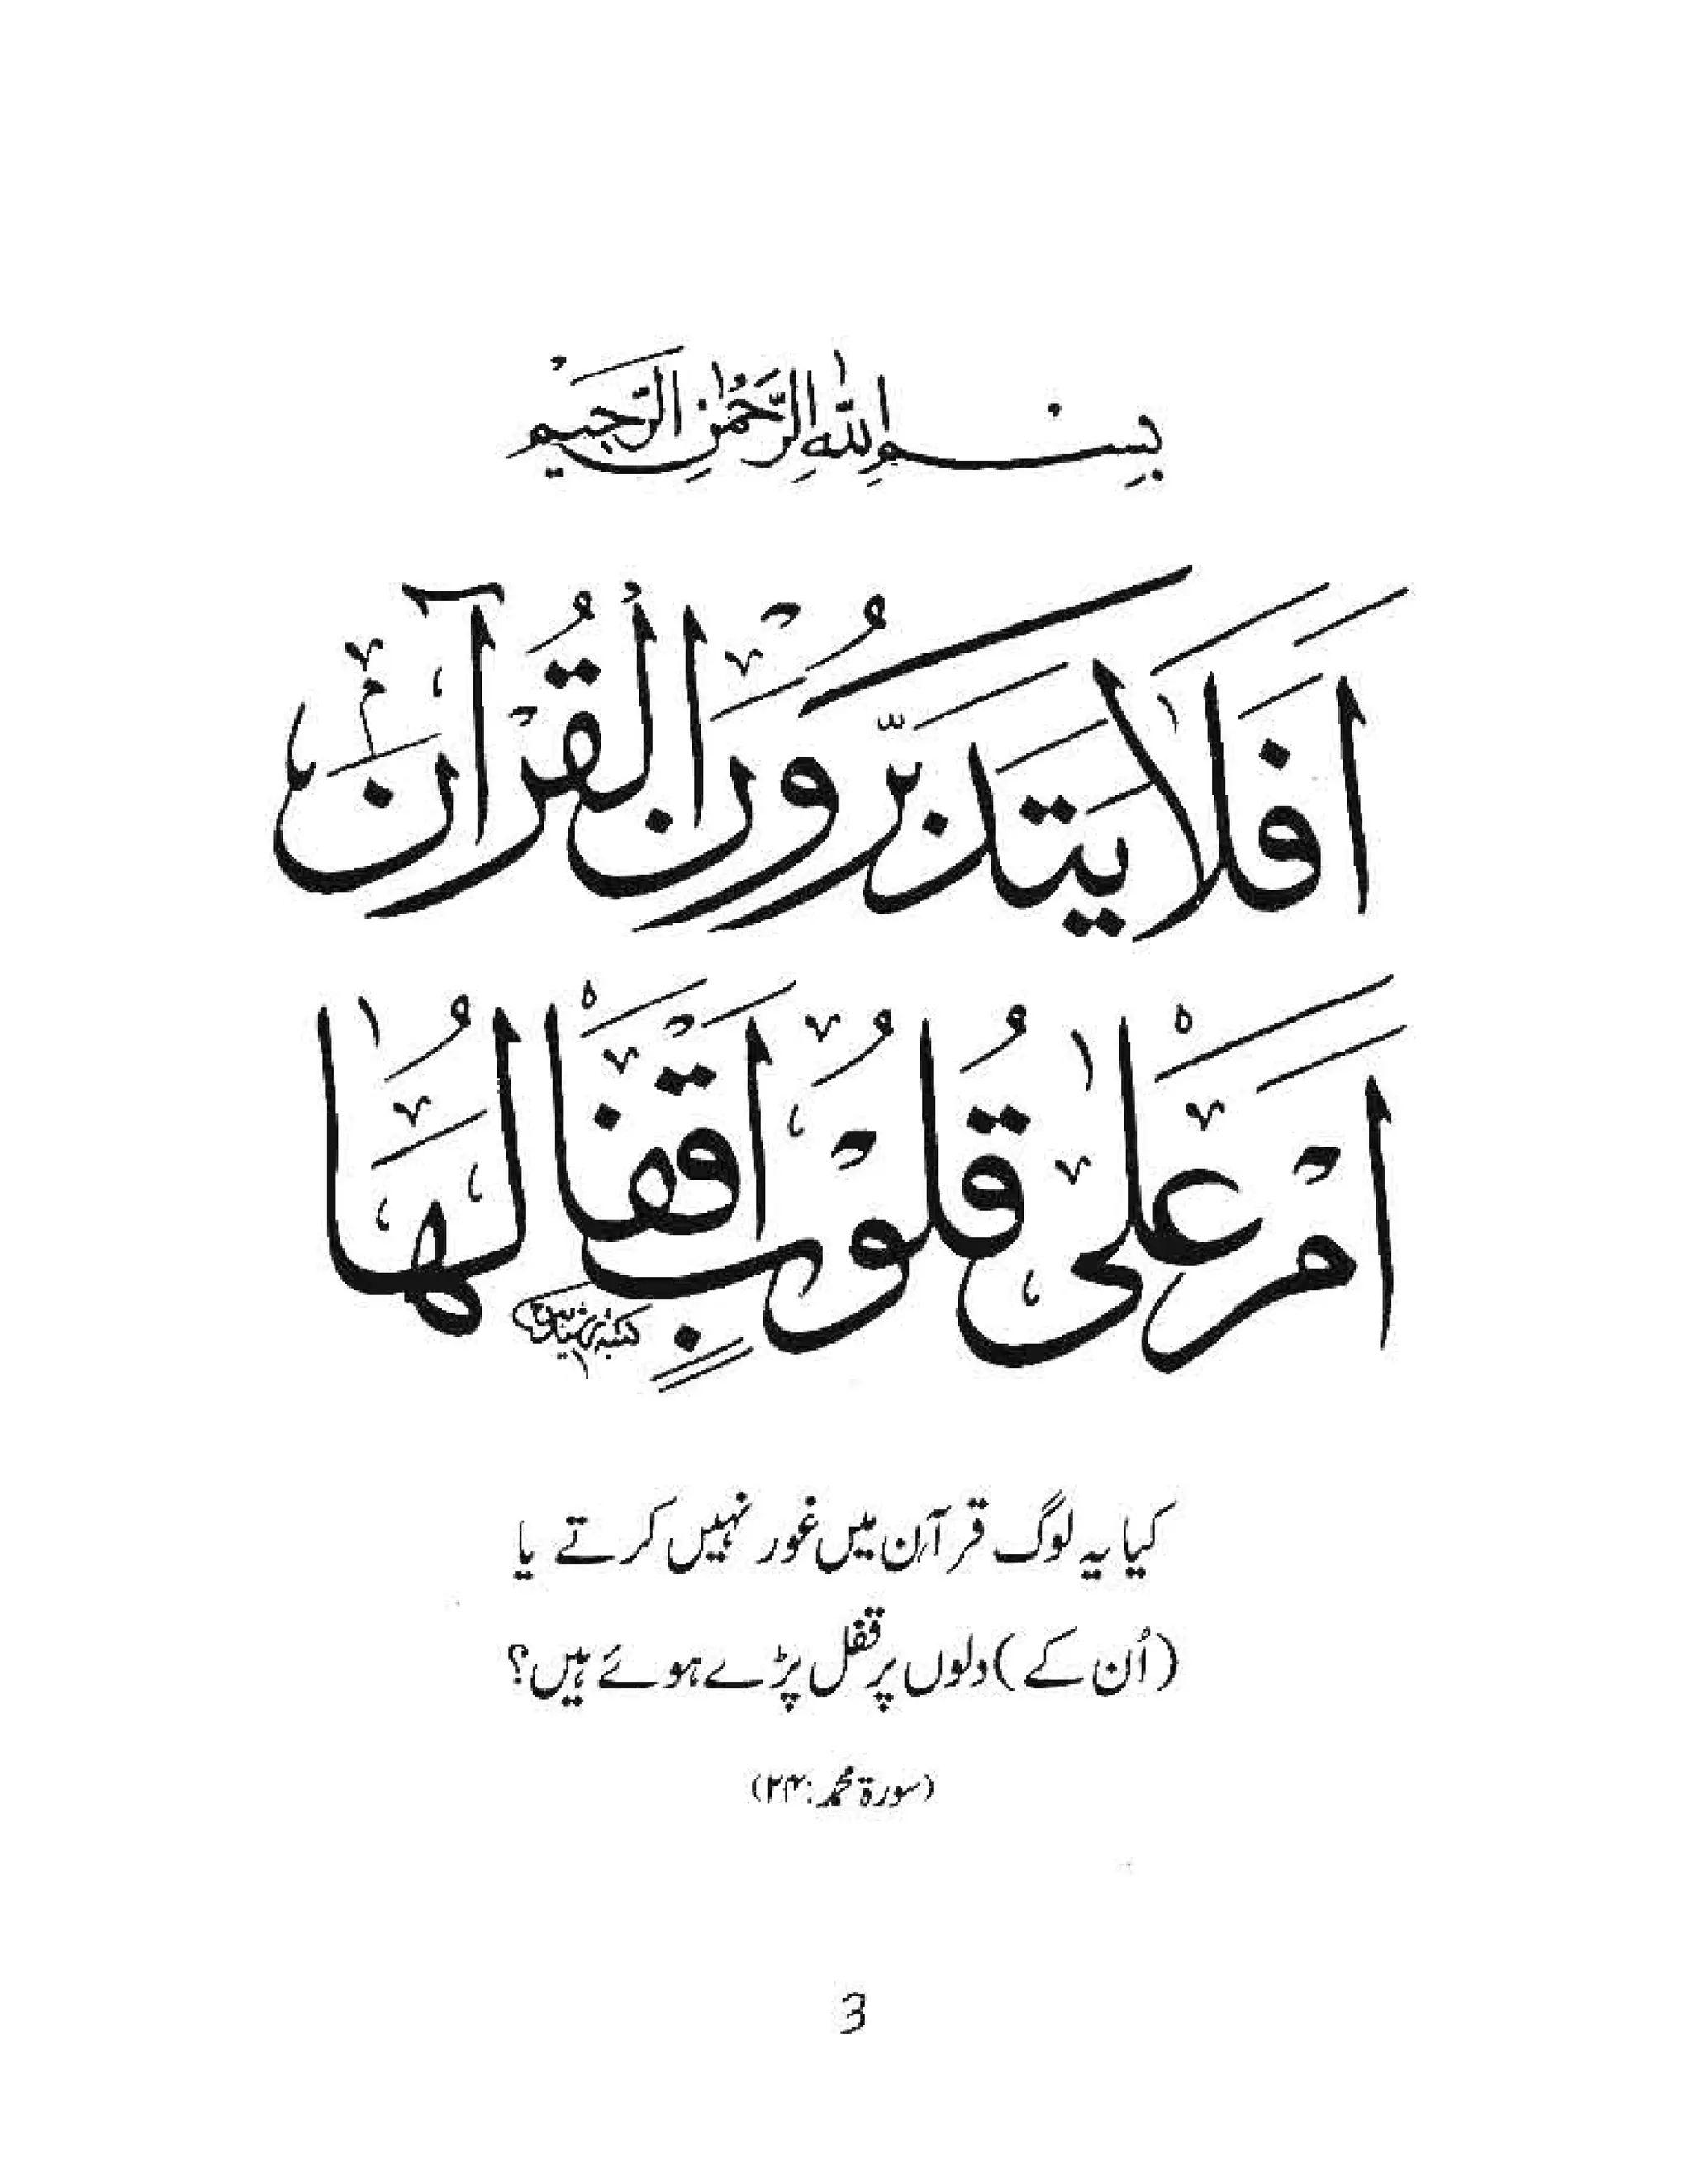 بِسْمِ اللّٰهِ الرَّحْمٰنِ الرَّحِيْمِ
اَفَلَا يَتَدَبَّرُوْنَ الْقُرْآنَ
اَمْ عَلٰى قُلُوْبٍ اَقْفَالُهَا
کیا یہ لوگ قرآن میں غور نہیں کرتے یا
(اُن کے) دلوں پر قفل پڑے ہوئے ہیں؟
(سورۃ محمد: ۲۴)
3